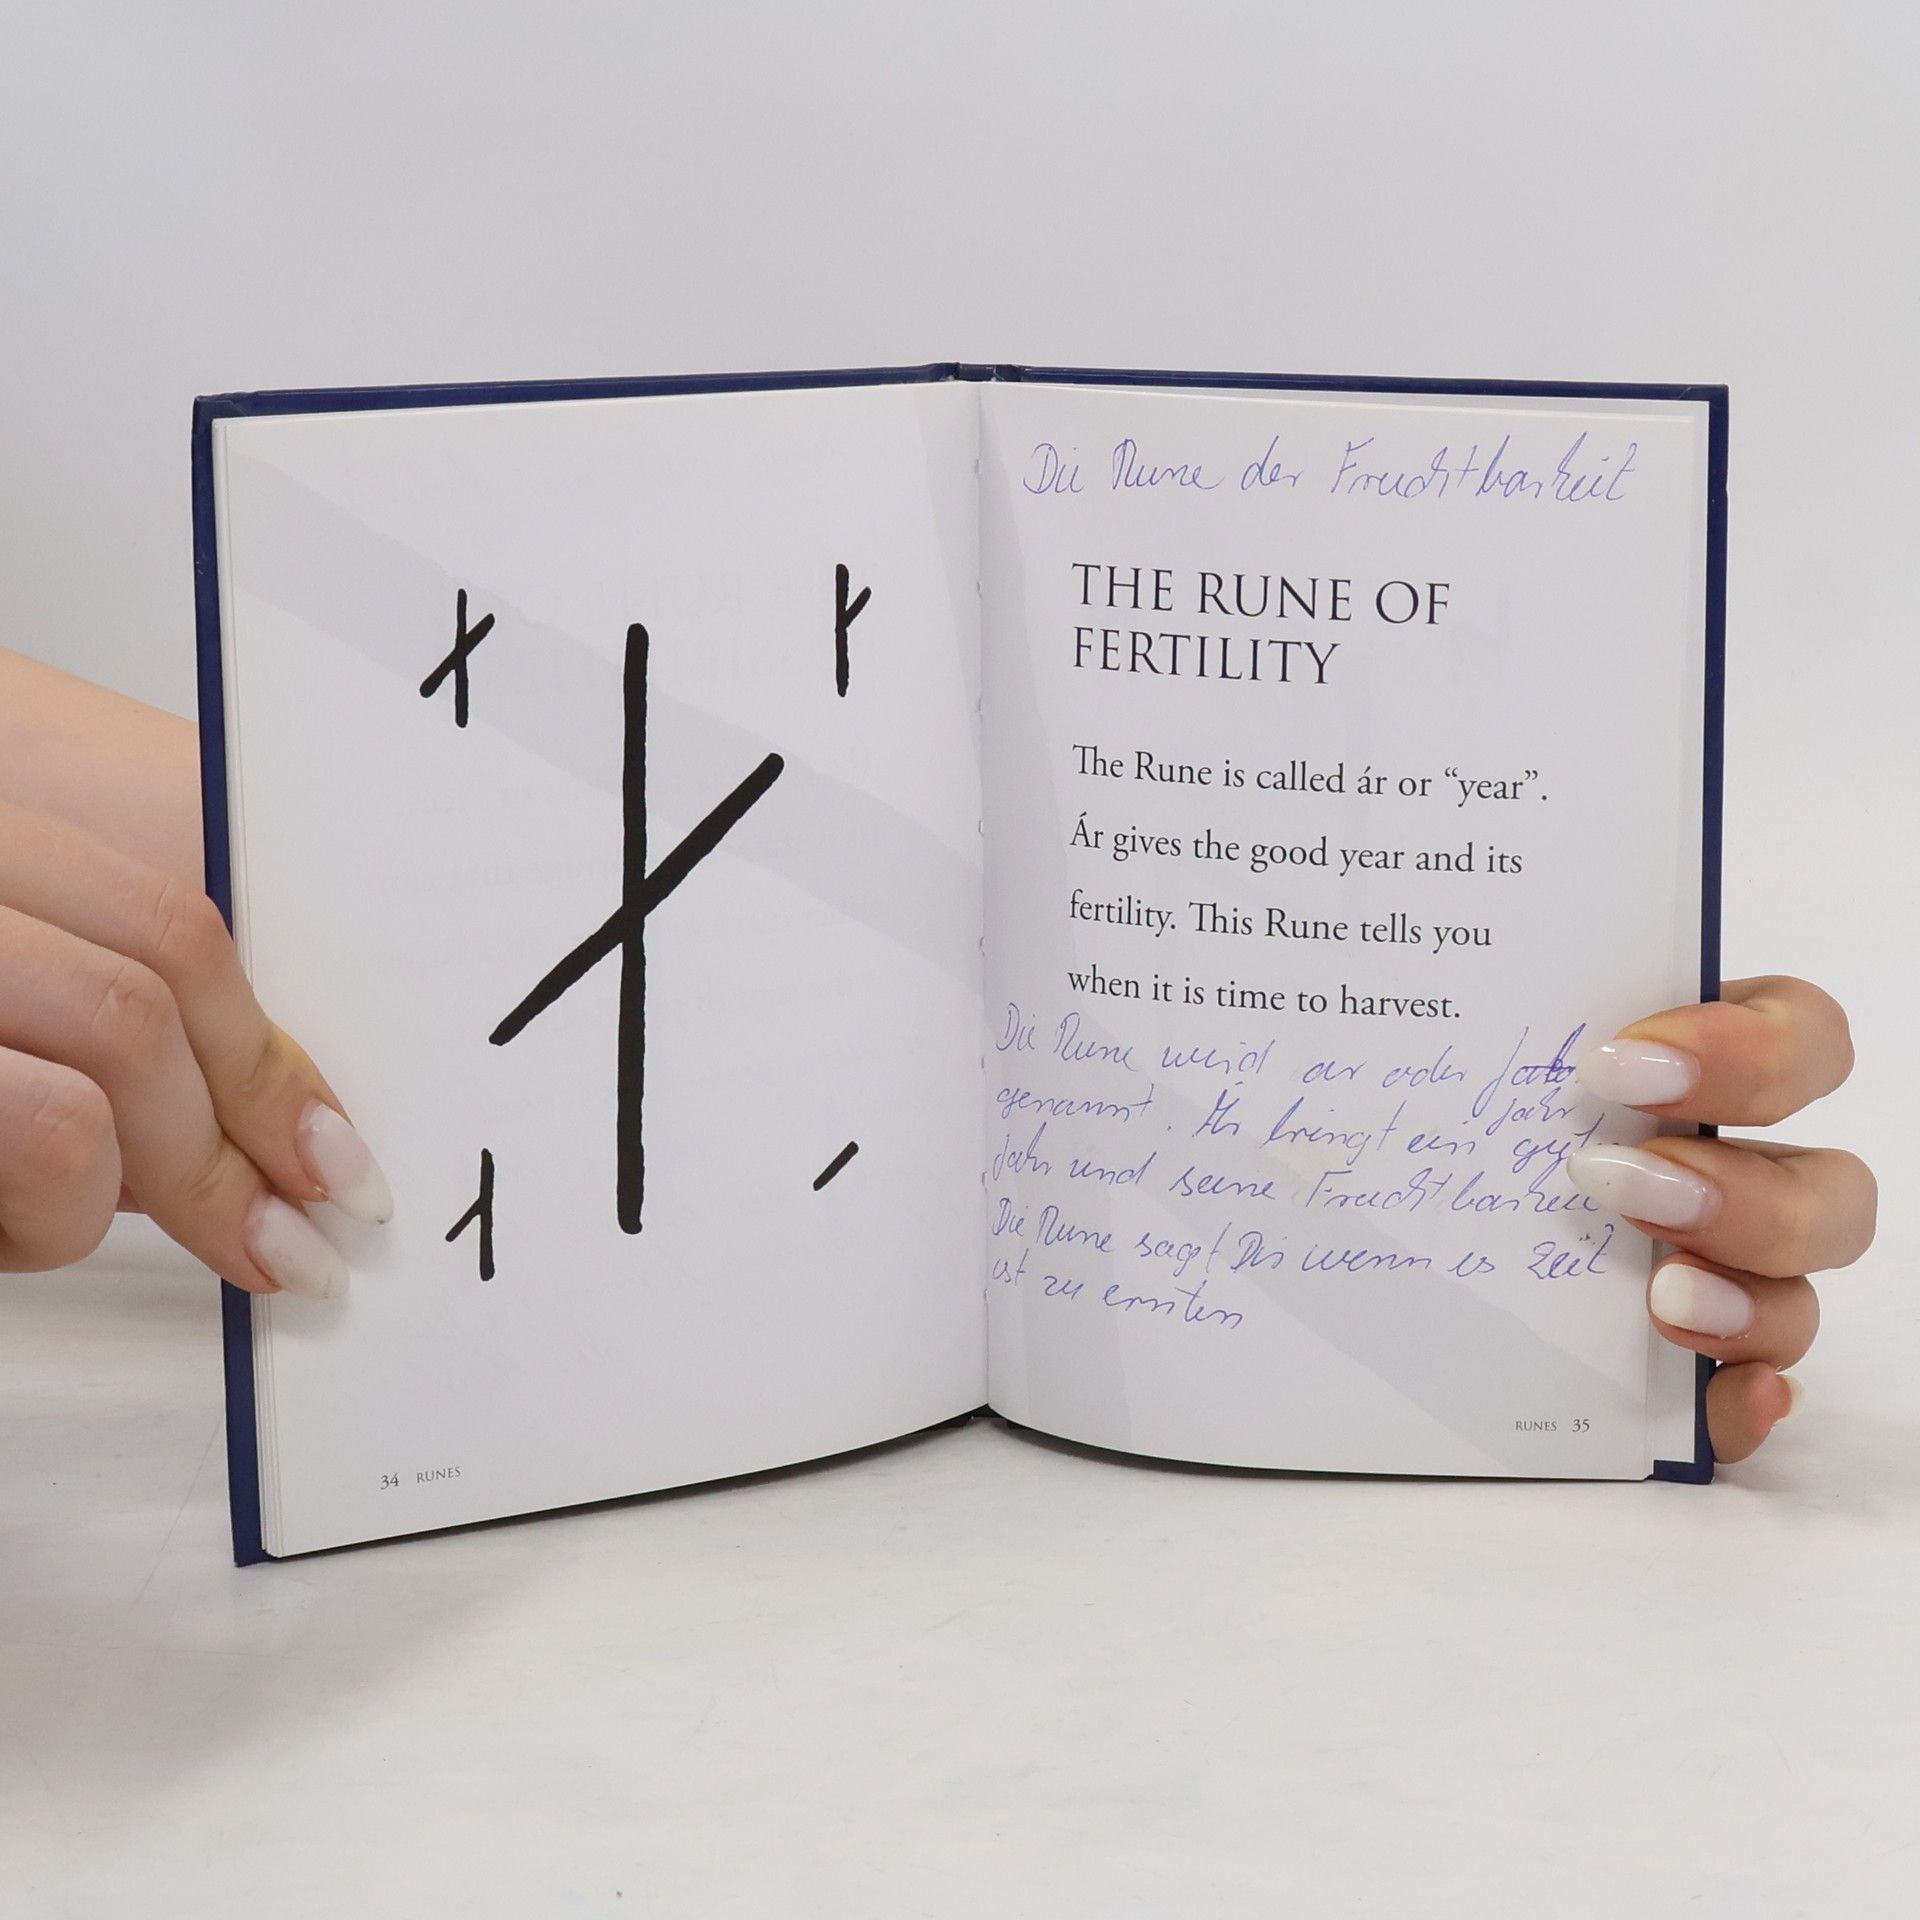 34 RUNES
Die Rune der Fruchtbarkeit
THE RUNE OF
FERTILITY
The Rune is called ár or “year”.
Ár gives the good year and its
fertility. This Rune tells you
when it is time to harvest.
Die Rune wird ar oder
Jahr
genannt. Ár bringt ein
Jahr und seine
Die Rune sagt Dir wenn es Zeit
ist zu ernten
RUNES 35